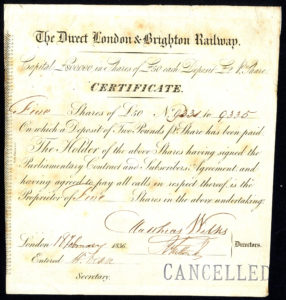 The Direct London & Brighton Railway.
Capital £800000 in Shares of £50 each Deposit £2 ⅌ Share
CERTIFICATE.
Five Shares of £50 Nº 9331 to 9335
On which a Deposit of Two Pounds ⅌ Share has been paid
The Holder of the above Shares having signed the
Parliamentary Contract and Subscribers Agreement, and
having agreed to pay all calls in respect thereof, is the
Proprietor of Five Shares in the above undertaking.
Matthias Wilks
London February 1836 Directors.
Entered
Secretary.
CANCELLED